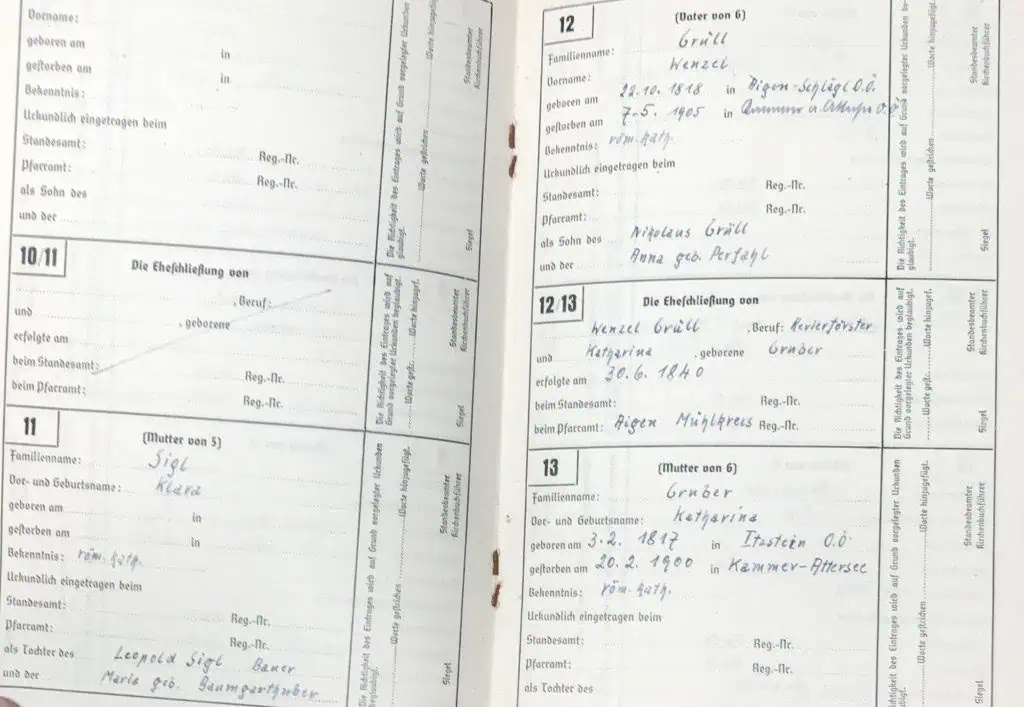 Vorname:
geboren am in
gestorben am in
Bekenntnis:
Urkundlich eingetragen beim
Standesamt: Reg.-Nr.
Pfarramt: Reg.-Nr.
als Sohn des
und der
Die Richtigkeit des Eintrages wird auf Grund vorgelegter Urkunden beglaubigt.
Worte gestrichen Worte hinzugefügt.
Siegel
Standesbeamter
Kirchenbuchführer
10/11
Die Eheschließung von
, Beruf:
und , geborene
erfolgte am
beim Standesamt: Reg.-Nr.
beim Pfarramt: Reg.-Nr.
Die Richtigkeit des Eintrages wird auf Grund vorgelegter Urkunden beglaubigt.
Worte gestr. Worte hinzugef.
Siegel
Standesbeamter
Kirchenbuchführer
11
(Mutter von 5)
Familienname: Sigl
Vor- und Geburtsname: Klara
geboren am in
gestorben am in
Bekenntnis: röm. kath.
Urkundlich eingetragen beim
Standesamt: Reg.-Nr.
Pfarramt: Reg.-Nr.
als Tochter des Leopold Sigl Bauer
und der Marie geb. Baumgarthuber
Die Richtigkeit des Eintrages wird auf Grund vorgelegter Urkunden
Worte gestrichen Worte hinzugefügt.
Siegel
Standesbeamter
Kirchenbuchführer
12
(Vater von 6)
Familienname: Grüll
Vorname: Wenzel
geboren am 22.10. 1818 in Aigen-Schlägl O.Ö.
gestorben am 7.5. 1905 in O.Ö.
Bekenntnis: röm. kath.
Urkundlich eingetragen beim
Standesamt: Reg.-Nr.
Pfarramt: Reg.-Nr.
als Sohn des Nikolaus Grüll
und der Anna geb. Perfahl
Die Richtigkeit des Eintrages wird auf Grund vorgelegter Urkunden beglaubigt.
Worte gestrichen Worte hinzugefügt.
Siegel
Standesbeamter
Kirchenbuchführer
12/13
Die Eheschließung von
Wenzel Grüll , Beruf: Revierförster
und Katharina , geborene Gruber
erfolgte am 30.6. 1840
beim Standesamt: Reg.-Nr.
beim Pfarramt: Aigen Mühlkreis Reg.-Nr.
Die Richtigkeit des Eintrages wird auf Grund vorgelegter Urkunden beglaubigt.
Worte gestr. Worte hinzugef.
Siegel
Standesbeamter
Kirchenbuchführer
13
(Mutter von 6)
Familienname: Gruber
Vor- und Geburtsname: Katharina
geboren am 3.2. 1817 in O.Ö.
gestorben am 20.2. 1900 in Kammer-Attersee
Bekenntnis: röm. kath.
Urkundlich eingetragen beim
Standesamt: Reg.-Nr.
Pfarramt: Reg.-Nr.
als Tochter des
Richtigkeit des Eintrages wird auf Grund vorgelegter Urkunden
beglaubigt.
Worte gestrichen Worte hinzugefügt.
Siegel
Standesbeamter
Kirchenbuchführer